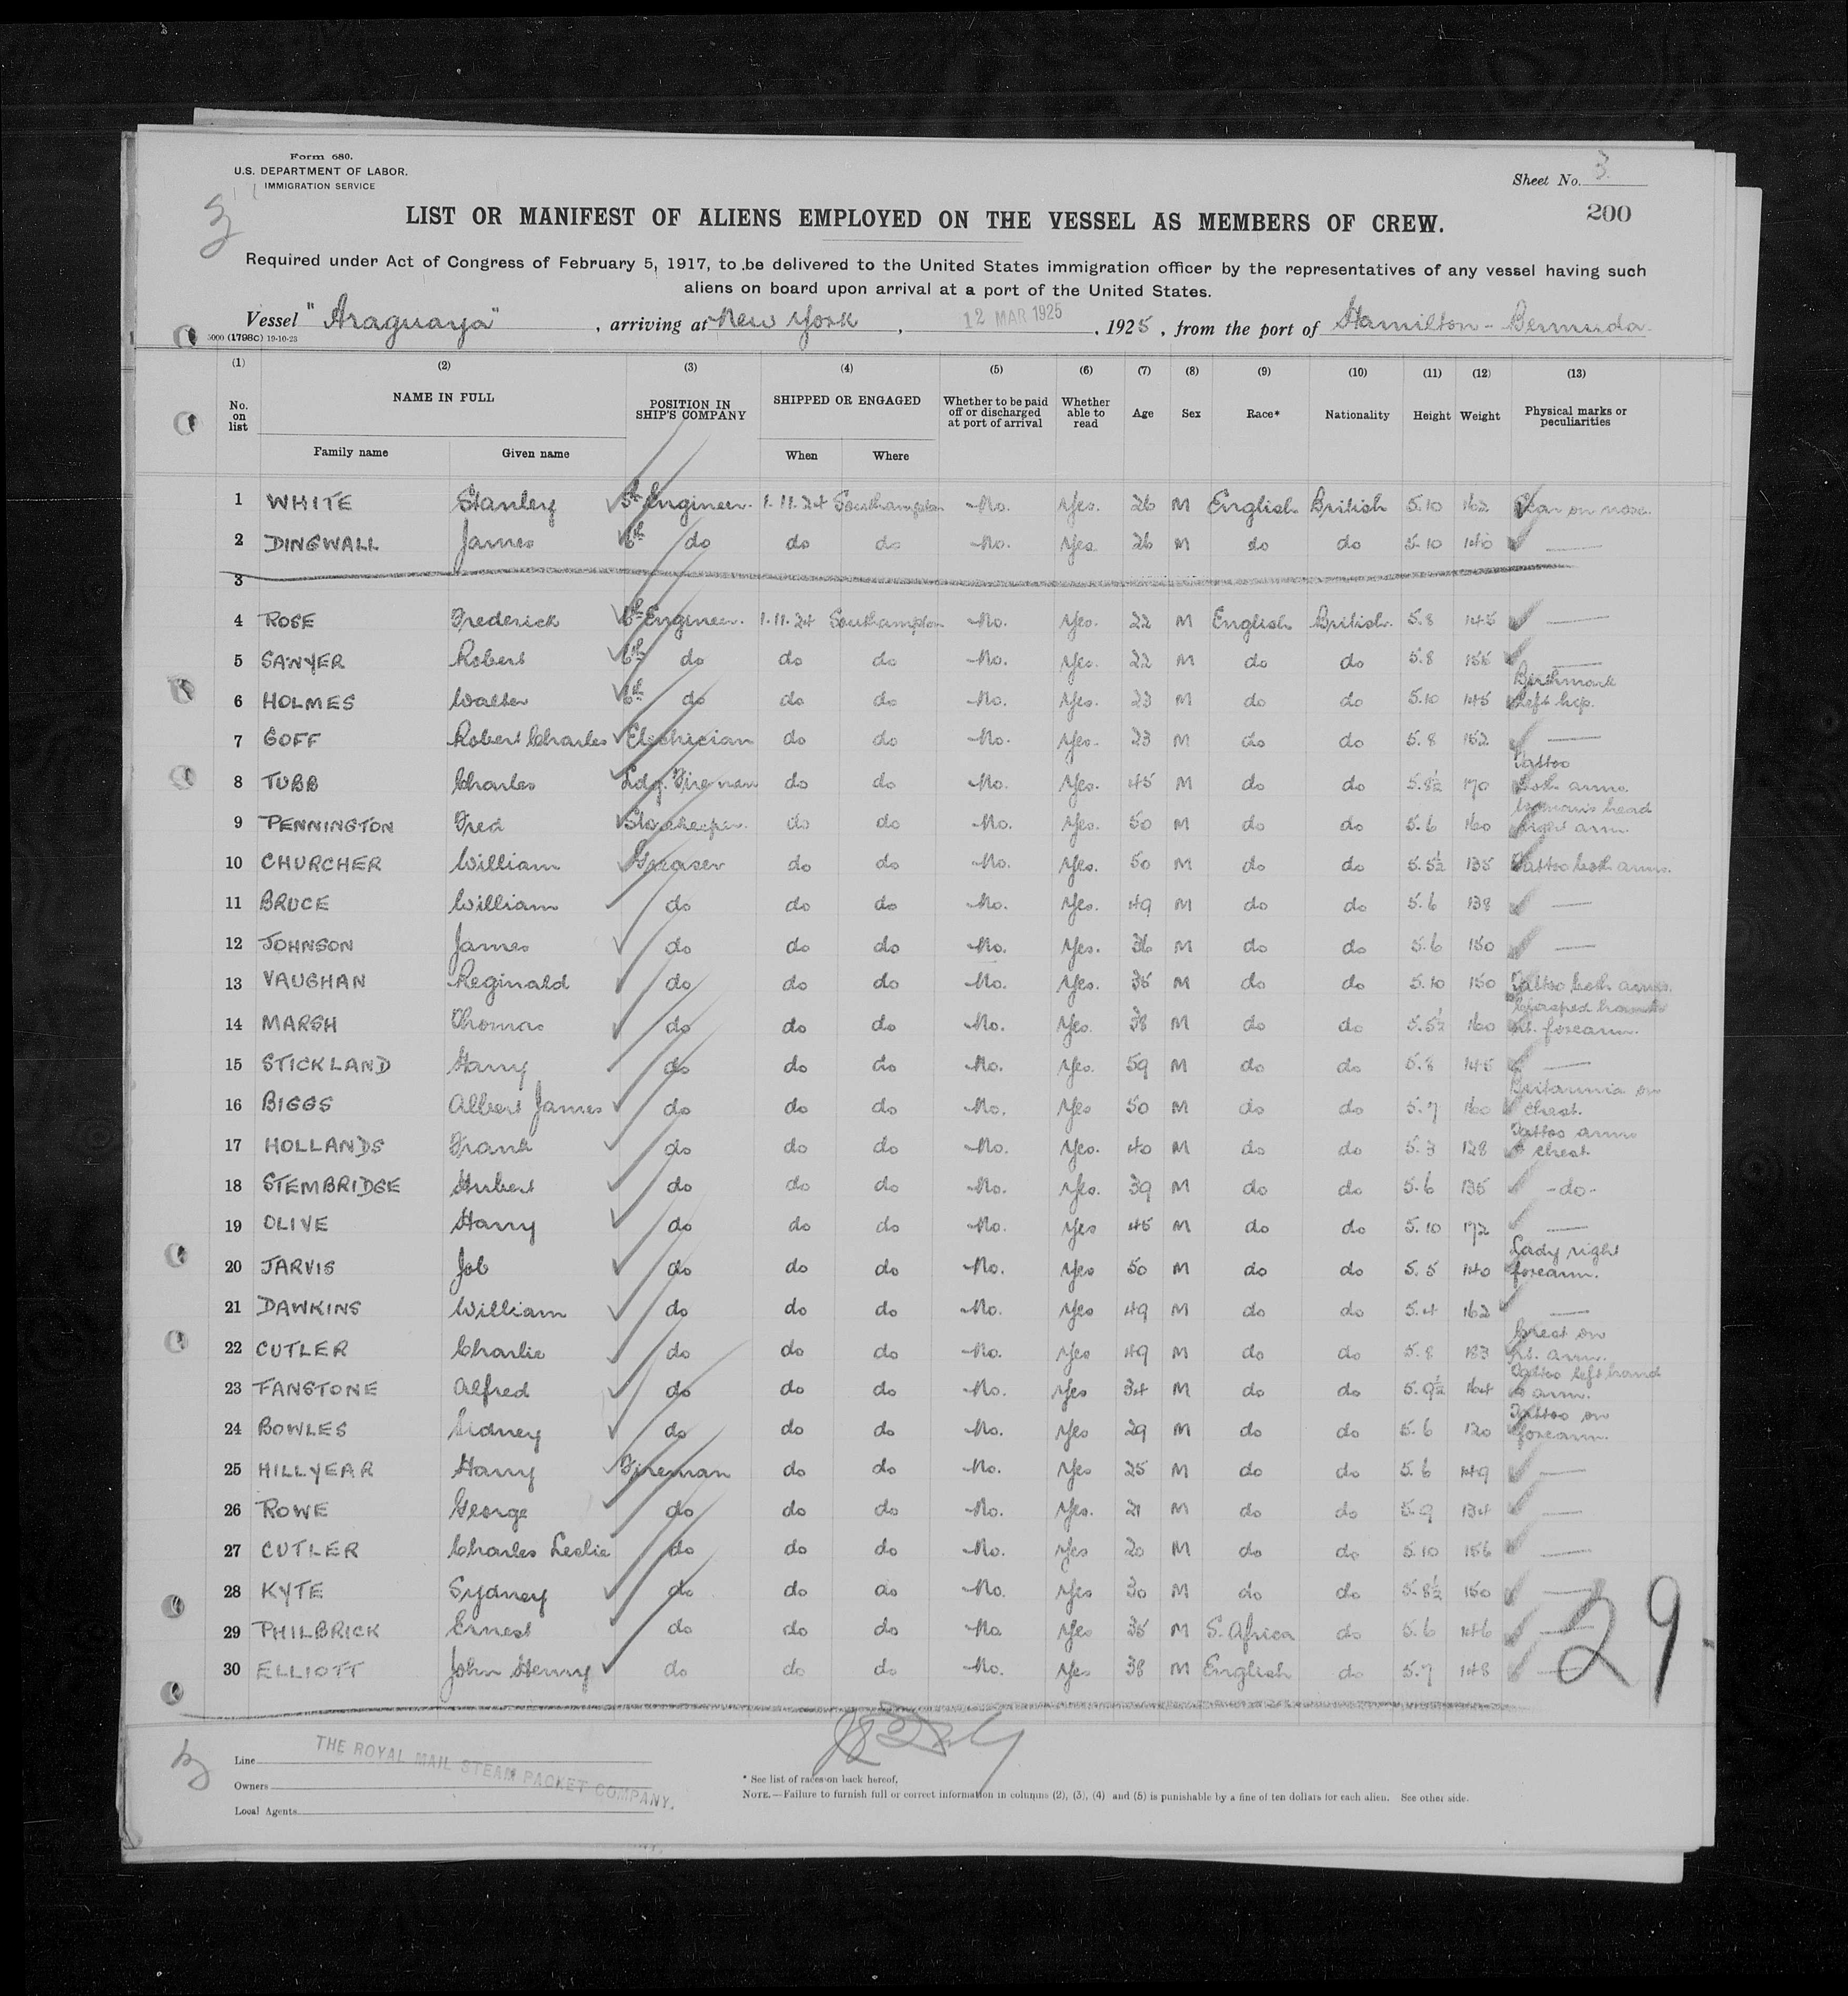 Form 680.
U.S. DEPARTMENT OF LABOR.
IMMIGRATION SERVICE
Sheet No. 3.
200
3
LIST OR MANIFEST OF ALIENS EMPLOYED ON THE VESSEL AS MEMBERS OF CREW.
Required under Act of Congress of February 5, 1917, to be delivered to the United States immigration officer by the representatives of any vessel having such
aliens on board upon arrival at a port of the United States.
Vessel "Araguaya", arriving at New York, 12 MAR 1925, 1925, from the port of Hamilton - Bermuda.
5000 (1798C) 19-10-23
(1) (2) (3) (4) (5) (6) (7) (8) (9) (10) (11) (12) (13)
No. on list NAME IN FULL POSITION IN SHIP'S COMPANY SHIPPED OR ENGAGED Whether to be paid off or discharged at port of arrival Whether able to read Age Sex Race* Nationality Height Weight Physical marks or peculiarities
Family name Given name When Where
1 WHITE Stanley 5th Engineer. 1.11.24 Southampton No. Yes. 26 M English British 5.10 162 Scar on nose.
2 DINGWALL James 6th do do do No. Yes. 26 M do do 5.10 140 —
3
4 ROSE Frederick 6th Engineer. 1.11.24 Southampton No. Yes. 22 M English British. 5.8 145 —
5 SAWYER Robert 6th do do do No. Yes. 22 M do do 5.8 155 —
6 HOLMES Walter 6th do do do No. Yes. 23 M do do 5.10 145 Birthmark left hip.
7 GOFF Robert Charles Electrician do do No. Yes. 23 M do do 5.8 152 —
8 TUBB Charles Ldg. Fireman do do No. Yes. 45 M do do 5.8½ 170 Tattoo both arms.
9 PENNINGTON Fred Storekeeper. do do No. Yes. 50 M do do 5.6 160 Woman's head right arm.
10 CHURCHER William Greaser do do No. Yes. 50 M do do 5.5½ 135 Tattoo both arms.
11 BRUCE William do do do No. Yes. 49 M do do 5.6 138 —
12 JOHNSON James do do do No. Yes. 36 M do do 5.6 150 —
13 VAUGHAN Reginald do do do No. Yes. 35 M do do 5.10 150 Tattoo both arms.
14 MARSH Thomas do do do No. Yes. 38 M do do 5.5½ 160 Clasped hands rt. forearm.
15 STICKLAND Harry do do do No. Yes. 59 M do do 5.8 145 —
16 BIGGS Albert James do do do No. Yes 50 M do do 5.7 160 Britannia on chest.
17 HOLLANDS Frank do do do No. Yes. 40 M do do 5.3 128 Tattoo arms chest.
18 STEMBRIDGE Hubert do do do No. Yes. 39 M do do 5.6 135 -do-
19 OLIVE Harry do do do No. Yes 45 M do do 5.10 172 —
20 JARVIS Job do do do No. Yes 50 M do do 5.5 140 Lady right forearm.
21 DAWKINS William do do do No. Yes 49 M do do 5.4 162 —
22 CUTLER Charlie do do do No. Yes 49 M do do 5.8 183 Crest on rt. arm.
23 FANSTONE Alfred do do do No. Yes 34 M do do 5.9½ 164 Tattoo left hand & arm.
24 BOWLES Sidney do do do No. Yes 29 M do do 5.6 120 Tattoo on forearm.
25 HILLYEAR Harry Fireman do do No. Yes 25 M do do 5.6 149 —
26 ROWE George do do do No. Yes. 21 M do do 5.9 134 —
27 CUTLER Charles Leslie do do do No. Yes 20 M do do 5.10 156 —
28 KYTE Sydney do do do No. Yes 30 M do do 5.8½ 150 —
29 PHILBRICK Ernest do do do No Yes 35 M S. Africa do 5.6 146 —
30 ELLIOTT John Henry do do do No. Yes 38 M English do 5.7 148 —
29
Line
THE ROYAL MAIL STEAM PACKET COMPANY.
Owners
Local Agents
* See list of races on back hereof.
NOTE.—Failure to furnish full or correct information in columns (2), (3), (4) and (5) is punishable by a fine of ten dollars for each alien. See other side.